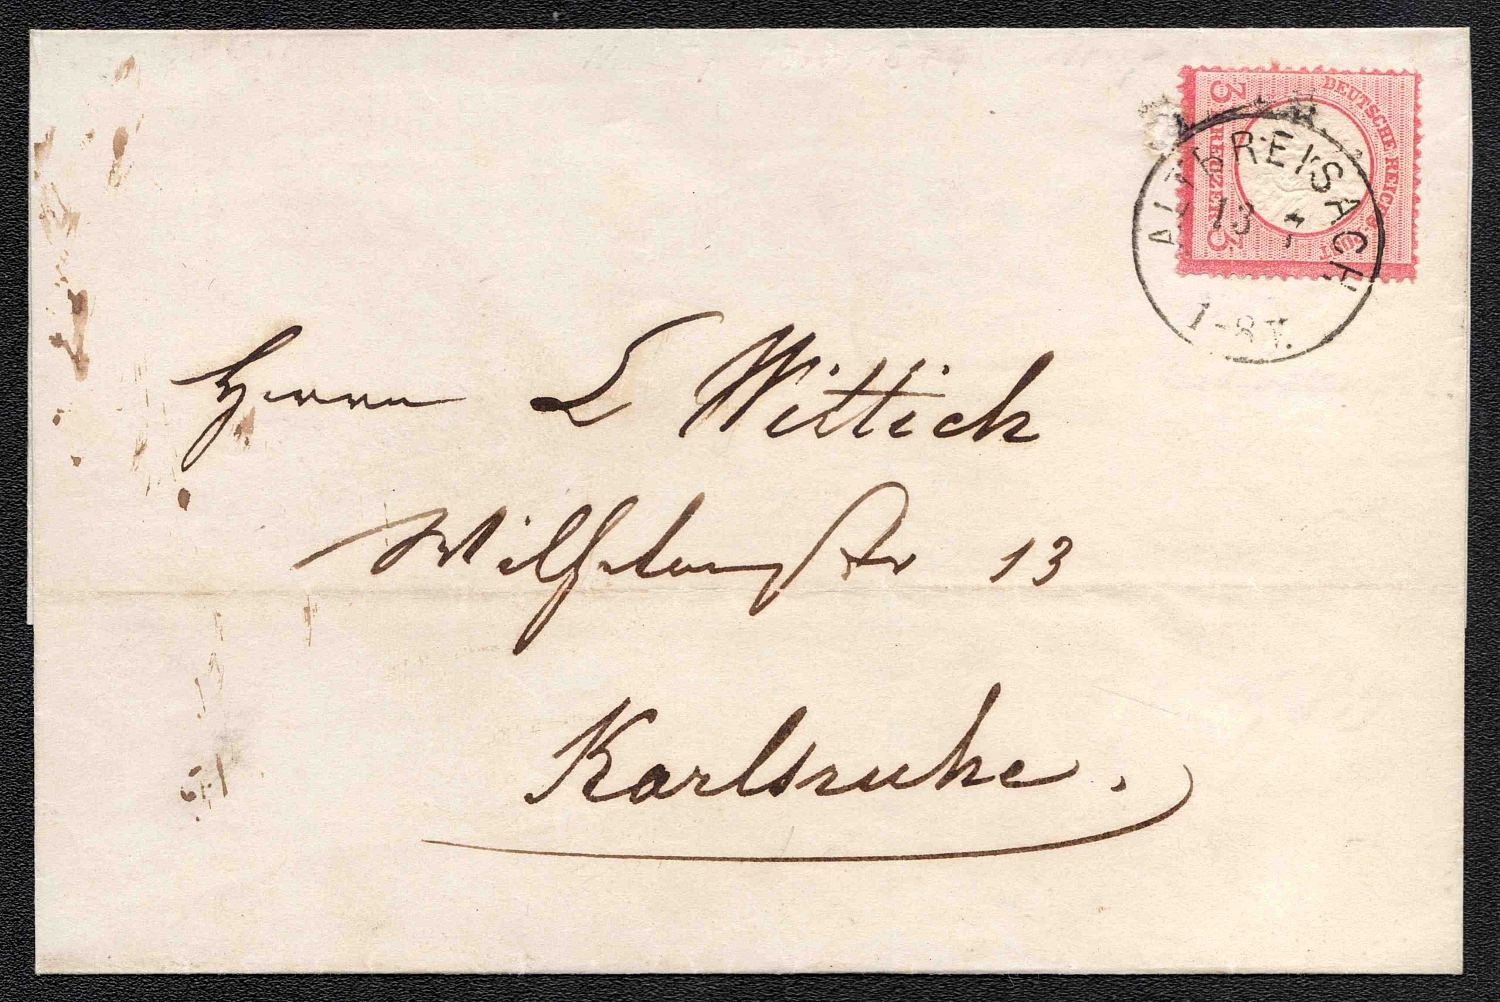 3 DEUTSCHE REICHS-POST
KREUZER 3
ALTBREISACH
13 7
7-8 V.
Herrn L Wittich
Wilhelmstr 13
Karlsruhe.